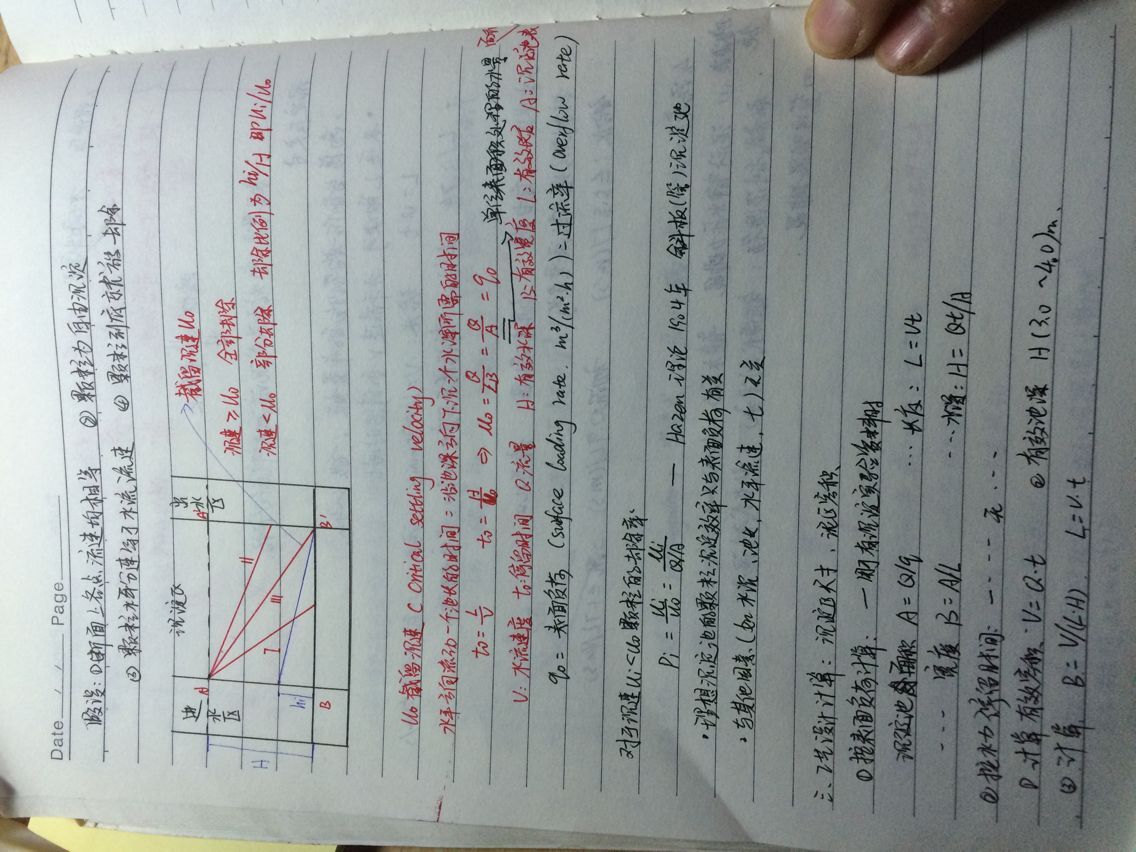 Date / / Page
假设：①断面上各点流速均相等 ②颗粒为自由沉淀
③颗粒水平分速等于水流流速 ④颗粒到底就被去除
进水区
沉淀区
出水区
A
A'
B
B'
H
hi
I
III
II
截留沉速u₀
沉速≥u₀ 全部去除
沉速<u₀ 部分去除 去除比例为hi/H 即ui/u₀
u₀ 截留沉速 (Critical settling velocity)
水平方向流动一个池长的时间=沿池深方向下沉一个水深所需的时间
t₀=L/V t₀=H/u₀ ⇒ u₀=Q/LB=Q/A=q₀ → 单位表面积处理的水量
V: 水流速度 t₀: 停留时间 Q: 流量 H: 有效水深 B: 有效宽度 L: 有效池长 A: 沉淀池表面
q₀=表面负荷 (surface loading rate. m³/(m²·h))=过流率 (overflow rate)
对于沉速ui<u₀颗粒的去除率:
Pi=ui/u₀=ui/(Q/A) — Hazen理论 1904年 斜板(管)沉淀池
·理想沉淀池的颗粒沉淀效率只与表面负荷有关
·与其他因素(如水深、池长、水平流速、t)无关
三、工艺设计计算：沉淀区尺寸、污泥容积
①按表面负荷计算： — 用有沉淀实验资料时
沉淀池面积 A=Q/q ... 长度: L=Vt
... 宽度 B=A/L ... 水深: H=Qt/A
②按水力停留时间: — ... 无 ...
①计算有效容积: V=Q·t ②有效池深 H(3.0~4.0)m.
③计算 B=V/(L·H) L=V·t